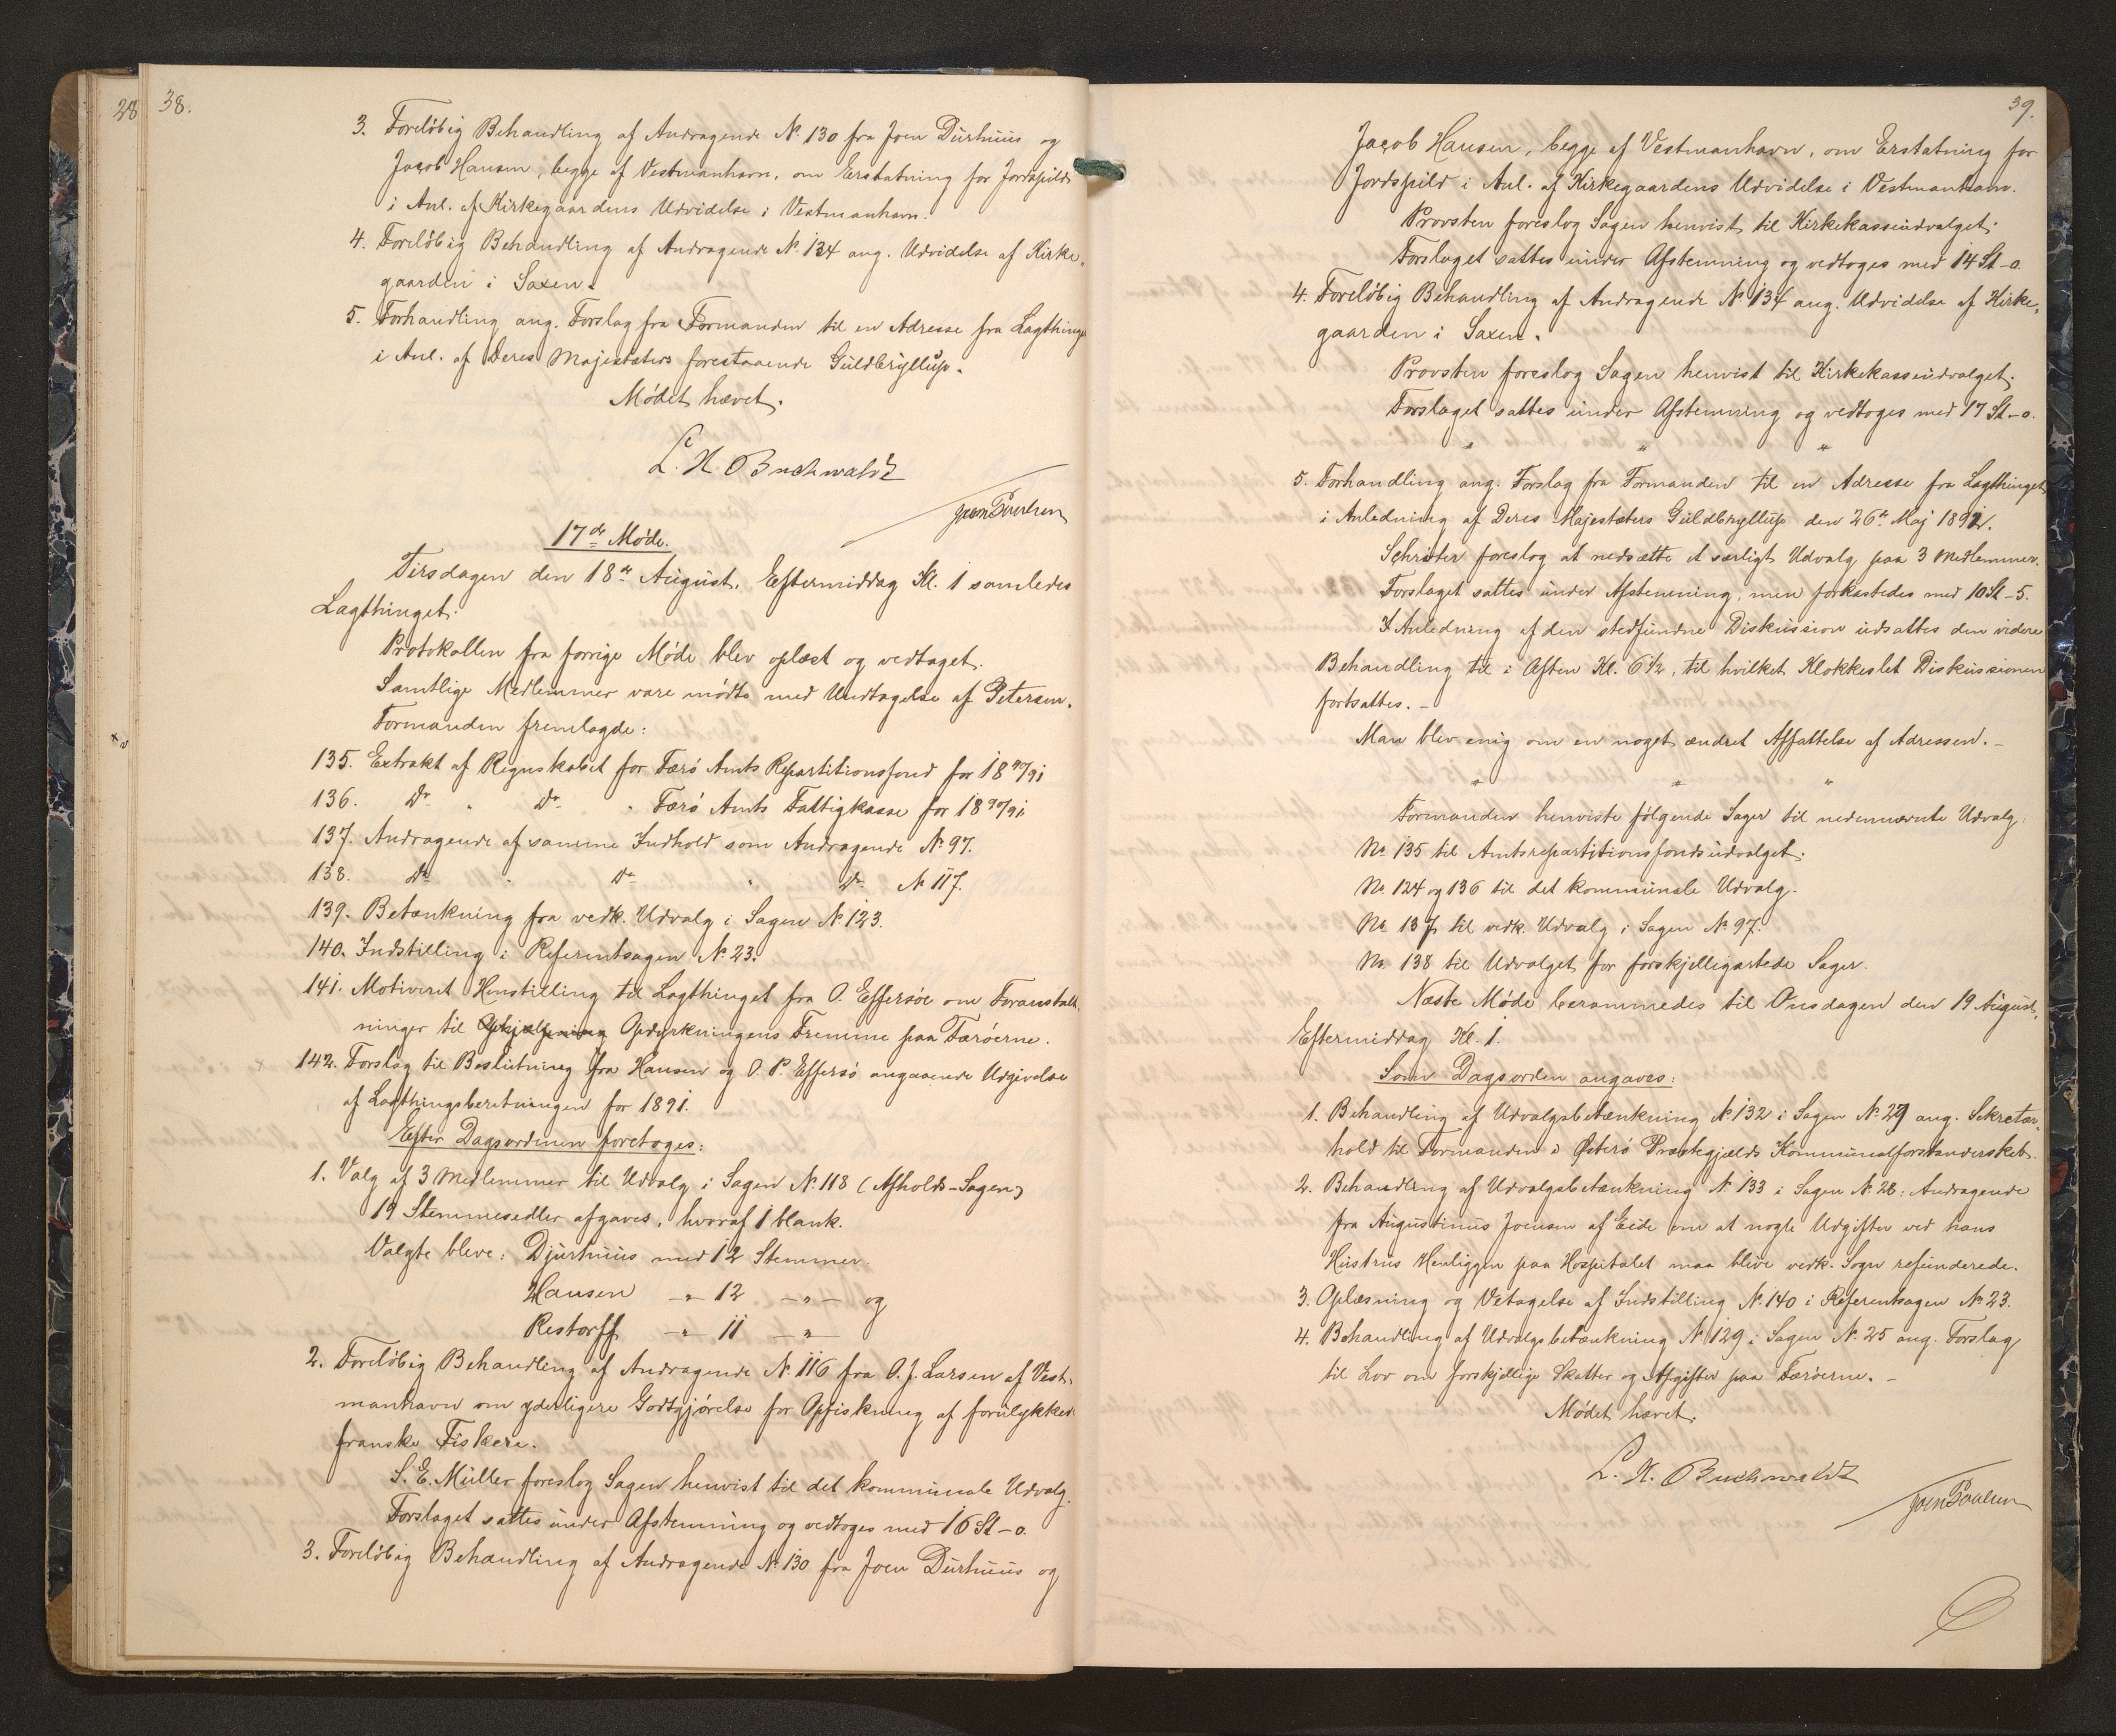 28
38.
3. Foreløbig Behandling af Andragende No. 130 fra Joen Dürhuus og
Jacob Hansen, begge af Vestmanhavn, om Erstatning for Jordspild
i Anl. af Kirkegaardens Udvidelse i Vestmanhavn.
4. Foreløbig Behandling af Andragende No. 134 ang. Udvidelse af Kirke„
gaarden i Saxen.
5. Forhandling ang. Forslag fra Formanden til en Adresse fra Lagthinget
i Anl. af Deres Majestæters forestaaende Guldbryllup.
Mødet hævet.
L. H. Buchwaldt
Joen Poulsen
17de Møde.
Tirsdagen den 18de August, Eftermiddag Kl. 1 samledes
Lagthinget.
Protokollen fra forrige Møde blev oplæst og vedtaget.
Samtlige Medlemmer vare mødte med Undtagelse af Petersen.
Formanden fremlagde:
135. Extrakt af Regnskabet for Færø Amts Repartitionsfond for 1890/91
136. Do „ Do „ Færø Amts Fattigkasse for 1890/91
137. Andragende af samme Indhold som Andragende No. 97.
138. Do „ Do „ Do No. 117.
139. Betænkning fra vedk. Udvalg i Sagen No. 123.
140. Indstilling i Referentsagen No. 23.
141. Motiveret Henstilling til Lagthinget fra O. Effersøe om Foranstalt„
ninger til Ophjælpning Opdyrkningens Fremme paa Færøerne.
142. Forslag til Beslutning fra Hansen og O. P. Effersø angaaende Udgivelse
af Lagthingsberetningen for 1891.
Efter Dagsordenen foretoges:
1. Valg af 3 Medlemmer til Udvalg i Sagen No. 118 (Afholds-Sagen)
19 Stemmesedler afgaves, hvoraf 1 blank.
Valgte bleve: Djurhuus med 12 Stemmer.
Hansen –„– 12 –„– og
Restorff –„– 11 –„–
2. Foreløbig Behandling af Andragende No. 116 fra O. J. Larsen af Vest„
manhavn om yderligere Godtgjørelse for Opfiskning af forulykkede
franske Fiskere.
S. E. Müller foreslog Sagen henvist til det kommunale Udvalg.
Forslaget sattes under Afstemning og vedtoges med 16 St – 0.
3. Foreløbig Behandling af Andragende No. 130 fra Joen Dürhuus og
39.
Jacob Hansen, begge af Vestmanhavn, om Erstatning for
Jordspild i Anl. af Kirkegaardens Udvidelse i Vestmanhavn.
Provsten foreslog Sagen henvist til Kirkekasseudvalget.
Forslaget sattes under Afstemning og vedtoges med 14 St – 0.
4. Foreløbig Behandling af Andragende No. 134 ang. Udvidelse af Kirke„
gaarden i Saxen.
Provsten foreslog Sagen henvist til Kirkekasseudvalget.
Forslaget sattes under Afstemning og vedtoges med 17 St – 0.
„ „ „
5. Forhandling ang. Forslag fra Formanden til en Adresse fra Lagthinget
i Anledning af Deres Majestæters Guldbryllup den 26de Maj 1892.
Schrøter foreslog at nedsætte et særligt Udvalg paa 3 Medlemmer.
Forslaget sattes under Afstemning, men forkastedes med 10 St – 5.
I Anledning af den stedfundne Diskussion udsattes den videre
Behandling til i Aften Kl. 6½, til hvilket Klokkeslet Diskussionen
fortsattes. –
Man blev enig om en noget ændret Affattelse af Adressen. –
„ „ „
Formanden henviste følgende Sager til nedennævnte Udvalg:
No. 135 til Amtsrepartitionsfondsudvalget.
No. 124 og 136 til det kommunale Udvalg.
No. 137 til vedk. Udvalg i Sagen No. 97.
No. 138 til Udvalget for forskjelligartede Sager.
Næste Møde berammedes til Onsdagen den 19 August,
Eftermiddag Kl. 1.
Som Dagsorden angaves:
1. Behandling af Udvalgsbetænkning No. 132 i Sagen No. 29 ang. Sekretær„
hold til Formanden i Østerø Præstegjælds Kommunalforstanderskab.
2. Behandling af Udvalgsbetænkning No. 133 i Sagen No. 28: Andragende
fra Augustinus Joensen af Eide om at nogle Udgifter ved hans
Hustrus Henliggen paa Hospitalet maa blive vedk. Sogn refunderede.
3. Oplæsning og Vetagelse af Indstilling No. 140 i Referentsagen No. 23.
4. Behandling af Udvalgsbetænkning No. 129 i Sagen No. 25 ang. Forslag
til Lov om forskjellige Skatter og Afgifter paa Færøerne. –
Mødet hævet.
L. H. Buchwaldt
Joen Poulsen